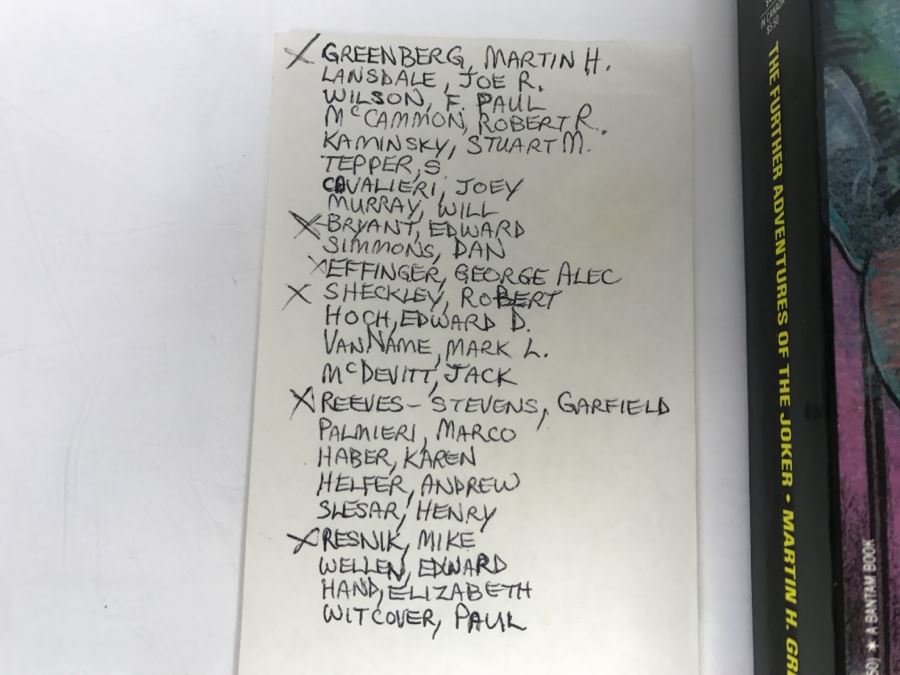 X GREENBERG, MARTIN H.
LANSDALE, JOE R.
WILSON, F. PAUL
McCAMMON, ROBERT R.
KAMINSKY, STUART M.
TEPPER, S
CAVALIERI, JOEY
MURRAY, WILL
X BRYANT, EDWARD
SIMMONS, DAN
X EFFINGER, GEORGE ALEC
X SHECKLEY, ROBERT
HOCH, EDWARD D.
VANNAME, MARK L.
McDEVITT, JACK
X REEVES-STEVENS, GARFIELD
PALMIERI, MARCO
HABER, KAREN
HELFER, ANDREW
SLESAR, HENRY
X RESNIK, MIKE
WELLEN, EDWARD
HAND, ELIZABETH
WITCOVER, PAUL
IN CANADA
$5.50
THE FURTHER ADVENTURES OF THE JOKER • MARTIN H. GR
50) ★ A BANTAM BOOK